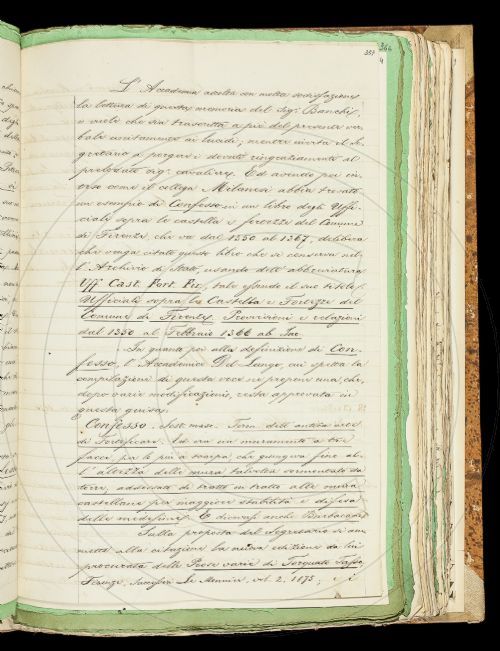 366
357
4
L'Accademia ascolta con molta sodisfazione
la lettura di questa memoria del Sig. Banchi,
e vuole che sia trascritta a piè del presente ver-
bale unitamente ai lucidi; mentre invita il Se-
gretario a porgere i dovuti ringraziamenti al
prelodato sig. cavaliere. Ed avendo poi in-
teso come il collega Milanesi abbia trovato
un esempio di Confesso in un libro degli Uffi-
ciali sopra le castella e fortezze del Comune
di Firenze, che va dal 1350 al 1367, delibera
che venga citato questo libro che si conserva nel-
l'Archivio di Stato, usando dell'abbreviatura
Uff. Cast. Fort. Fir., tale essendo il suo titolo:
Ufficiali sopra le Castella e Fortezze del
Comune di Firenze. Provvisioni e relazioni
dal 1350 al Febbraio 1366 ab Inc.
In quanto poi alla definizione di Con-
fesso, l'Accademico Del Lungo, cui spetta la
compilazione di questa voce ne propone una, che,
dopo varie modificazioni, resta approvata in
questa guisa:
Confesso. Sost. masc. Term. dell'antica arte
di Fortificare. Ed era un muramento a tre
facce per lo più a scarpa che giungeva fino al-
l'altezza delle mura talvolta sormontato da
torre, addossato di tratto in tratto alle mura
castellane per maggiore stabilità e difesa
delle medesime. E dicevasi anche Barbacane
Sulla proposta del Segretario si am-
mette alla citazione la nuova edizione da lui
procurata delle Prose varie di Torquato Tasso,
Firenze, Successori Le Monnier, vol. 2, 1875; e i